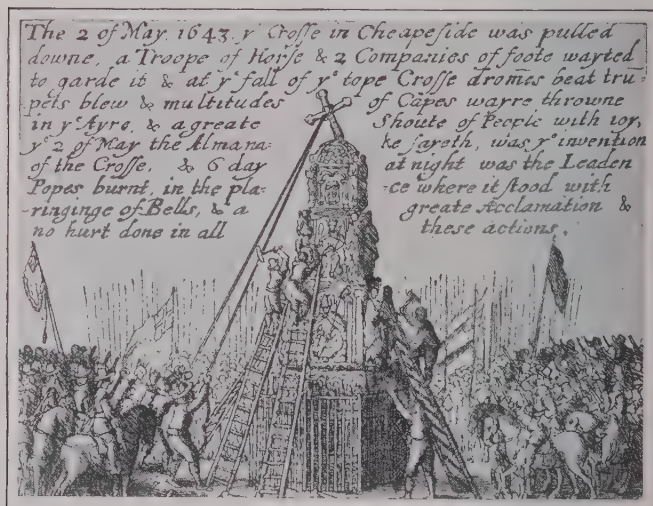 The 2 of May. 1643. yᵉ Croſſe in Cheapeſide was pulled
downe, a Troope of Horſe & 2 Companies of foote wayted
to garde it & at yᵉ fall of yᵉ tope Croſſe dromes beat tru-
pets blew & multitudes of Capes wayre throwne
in yᵉ Ayre, & a greate Shoute of People with ioy,
yᵉ 2 of May the Almana- ke ſayeth, was yᵉ invention
of the Croſſe, & 6 day at night was the Leaden
Popes burnt, in the pla- -ce where it ſtood with
-ringinge of Bells, & a greate Acclamation &
no hurt done in all theſe actions.